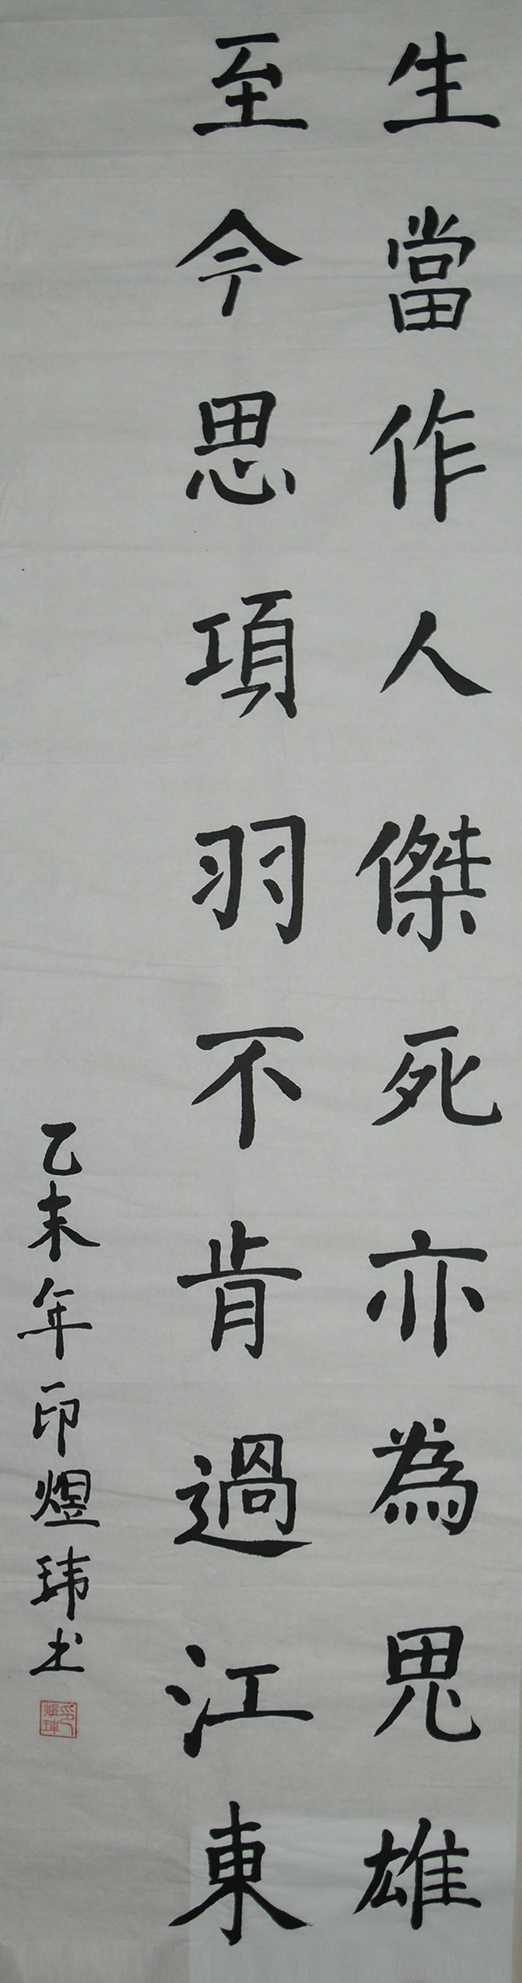 生當作人傑死亦為鬼雄
至今思項羽不肯過江東
乙未年印煜玮书
印煜玮